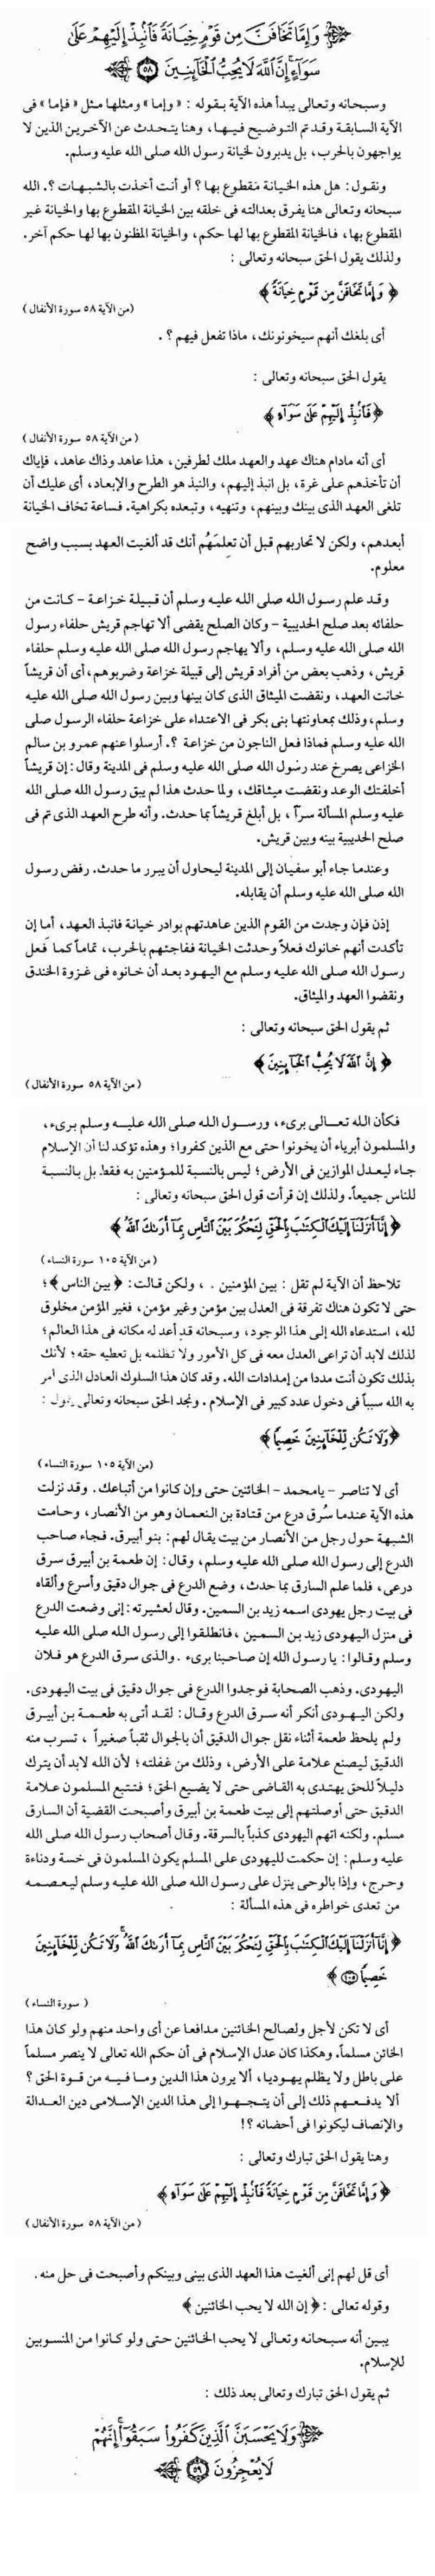 وَإِمَّا تَخَافَنَّ مِن قَوْمٍ خِيَانَةً فَانۢبِذْ إِلَيْهِمْ عَلَىٰ
سَوَآءٍ إِنَّ ٱللَّهَ لَا يُحِبُّ ٱلْخَآئِنِينَ ٥٨
وسبحانه وتعالى يبدأ هذه الآية بقوله : « وإما » ومثلها مثل « فإما » فى
الآية السابقة وقد تم التوضيح فيها، وهنا يتحدث عن الآخرين الذين لا
يواجهون بالحرب، بل يدبرون لخيانة رسول الله صلى الله عليه وسلم.
ونقول: هل هذه الخيانة مقطوع بها ؟ أو أنت أخذت بالشبهات ؟. الله
سبحانه وتعالى هنا يفرق بعدالته فى خلقه بين الخيانة المقطوع بها والخيانة غير
المقطوع بها، فالخيانة المقطوع بها لها حكم، والخيانة المظنون بها لها حكم آخر.
ولذلك يقول الحق سبحانه وتعالى :
﴿ وَإِمَّا تَخَافَنَّ مِن قَوْمٍ خِيَانَةً ﴾
(من الآية ٥٨ سورة الأنفال)
أى بلغك أنهم سيخونونك، ماذا تفعل فيهم ؟ .
يقول الحق سبحانه وتعالى :
﴿ فَانۢبِذْ إِلَيْهِمْ عَلَىٰ سَوَآءٍ ﴾
( من الآية ٥٨ سورة الأنفال )
أى أنه مادام هناك عهد والعهد ملك لطرفين، هذا عاهد وذاك عاهد، فإياك
أن تأخذهم على غرة، بل انبذ إليهم، والنبذ هو الطرح والإبعاد، أى عليك أن
تلغى العهد الذى بينك وبينهم، وتنهيه، وتبعده بكراهية. فساعة تخاف الخيانة
أبعدهم، ولكن لا تحاربهم قبل أن تعلمَهُم أنك قد ألغيت العهد بسبب واضح
معلوم.
وقد علم رسول الله صلى الله عليه وسلم أن قبيلة خزاعة - كانت من
حلفائه بعد صلح الحديبية - وكان الصلح يقضى ألا تهاجم قريش حلفاء رسول
الله صلى الله عليه وسلم، وألا يهاجم رسول الله صلى الله عليه وسلم حلفاء
قريش، وذهب بعض من أفراد قريش إلى قبيلة خزاعة وضربوهم، أى أن قريشاً
خانت العهد، ونقضت الميثاق الذى كان بينها وبين رسول الله صلى الله عليه
وسلم، وذلك بمعاونتها بنى بكر فى الاعتداء على خزاعة حلفاء الرسول صلى
الله عليه وسلم فماذا فعل الناجون من خزاعة ؟. أرسلوا عنهم عمرو بن سالم
الخزاعى يصرخ عند رسول الله صلى الله عليه وسلم فى المدينة وقال: إن قريشاً
أخلفتك الوعد ونقضت ميثاقك، ولما حدث هذا لم يبق رسول الله صلى الله
عليه وسلم المسألة سراً ، بل أبلغ قريشاً بما حدث. وأنه طرح العهد الذى تم فى
صلح الحديبية بينه وبين قريش.
وعندما جاء أبو سفيان إلى المدينة ليحاول أن يبرر ما حدث. رفض رسول
الله صلى الله عليه وسلم أن يقابله.
إذن فإن وجدت من القوم الذين عاهدتهم بوادر خيانة فانبذ العهد، أما إن
تأكدت أنهم خانوك فعلاً وحدثت الخيانة ففاجئهم بالحرب، تماماً كما فعل
رسول الله صلى الله عليه وسلم مع اليهود بعد أن خانوه فى غزوة الخندق
ونقضوا العهد والميثاق.
ثم يقول الحق سبحانه وتعالى :
﴿ إِنَّ ٱللَّهَ لَا يُحِبُّ ٱلْخَآئِنِينَ ﴾
( من الآية ٥٨ سورة الأنفال )
فكأن الله تعالى برىء، ورسول الله صلى الله عليه وسلم برىء،
والمسلمون أبرياء أن يخونوا حتى مع الذين كفروا؛ وهذه تؤكد لنا أن الإسلام
جاء ليعدل الموازين فى الأرض؛ ليس بالنسبة للمؤمنين به فقط بل بالنسبة
للناس جميعاً. ولذلك إن قرأت قول الحق سبحانه وتعالى :
﴿ إِنَّآ أَنزَلْنَآ إِلَيْكَ ٱلْكِتَٰبَ بِٱلْحَقِّ لِتَحْكُمَ بَيْنَ ٱلنَّاسِ بِمَآ أَرَىٰكَ ٱللَّهُ ﴾
( من الآية ١٠٥ سورة النساء )
تلاحظ أن الآية لم تقل : بين المؤمنين . ، ولكن قالت: ﴿ بين الناس ﴾؛
حتى لا تكون هناك تفرقة فى العدل بين مؤمن وغير مؤمن، فغير المؤمن مخلوق
لله، استدعاه الله إلى هذا الوجود، وسبحانه قد أعد له مكانه فى هذا العالم؛
لذلك لابد أن تراعى العدل معه فى كل الأمور ولا تظلمه بل تعطيه حقه؛ لأنك
بذلك تكون أنت مددا من إمدادات الله. وقد كان هذا السلوك العادل الذى أمر
به الله سبباً فى دخول عدد كبير فى الإسلام . ونجد الحق سبحانه وتعالى يقول :
﴿ وَلَا تَكُن لِّلْخَآئِنِينَ خَصِيمًا ﴾
(من الآية ١٠٥ سورة النساء )
أى لا تناصر - يا محمد - الخائنين حتى وإن كانوا من أتباعك. وقد نزلت
هذه الآية عندما سُرق درع من قتادة بن النعمان وهو من الأنصار، وحامت
الشبهة حول رجل من الأنصار من بيت يقال لهم: بنو أبيرق. فجاء صاحب
الدرع إلى رسول الله صلى الله عليه وسلم، وقال: إن طعمة بن أبيرق سرق
درعى، فلما علم السارق بما حدث، وضع الدرع فى جوال دقيق وأسرع وألقاه
فى بيت رجل يهودى اسمه زيد بن السمين. وقال لعشيرته: إنى وضعت الدرع
فى منزل اليهودى زيد بن السمين، فانطلقوا إلى رسول الله صلى الله عليه
وسلم وقالوا: يا رسول الله إن صاحبنا برىء. والذى سرق الدرع هو فلان
اليهودى. وذهب الصحابة فوجدوا الدرع فى جوال دقيق فى بيت اليهودى.
ولكن اليهودى أنكر أنه سرق الدرع وقال: لقد أتى به طعمة بن أبيرق
ولم يلحظ طعمة أثناء نقل جوال الدقيق أن بالجوال ثقباً صغيراً ، تسرب منه
الدقيق ليصنع علامة على الأرض، وذلك من غفلته؛ لأن الله لابد أن يترك
دليلاً للحق يهتدى به القاضى حتى لا يضيع الحق؛ فتتبع المسلمون علامة
الدقيق حتى أوصلتهم إلى بيت طعمة بن أبيرق وأصبحت القضية أن السارق
مسلم. ولكنه اتهم اليهودى كذباً بالسرقة. وقال أصحاب رسول الله صلى الله
عليه وسلم: إن حكمت لليهودى على المسلم يكون المسلمون فى خسة ودناءة
وحرج، وإذا بالوحى ينزل على رسول الله صلى الله عليه وسلم ليعصمه
من تعدى خواطره فى هذه المسألة :
﴿ إِنَّآ أَنزَلْنَآ إِلَيْكَ ٱلْكِتَٰبَ بِٱلْحَقِّ لِتَحْكُمَ بَيْنَ ٱلنَّاسِ بِمَآ أَرَىٰكَ ٱللَّهُ وَلَا تَكُن لِّلْخَآئِنِينَ
خَصِيمًا ١٠٥ ﴾
( سورة النساء )
أى لا تكن لأجل ولصالح الخائنين مدافعا عن أى واحد منهم ولو كان هذا
الخائن مسلماً. وهكذا كان عدل الإسلام فى أن حكم الله تعالى لا ينصر مسلماً
على باطل ولا يظلم يهوديا، ألا يرون هذا الدين وما فيه من قوة الحق ؟
ألا يدفعهم ذلك إلى أن يتجهوا إلى هذا الدين الإسلامى دين العدالة
والإنصاف ليكونوا فى أحضانه ؟!
وهنا يقول الحق تبارك وتعالى :
﴿ وَإِمَّا تَخَافَنَّ مِن قَوْمٍ خِيَانَةً فَانۢبِذْ إِلَيْهِمْ عَلَىٰ سَوَآءٍ ﴾
( من الآية ٥٨ سورة الأنفال )
أى قل لهم إنى ألغيت هذا العهد الذى بينى وبينكم وأصبحت فى حل منه.
وقوله تعالى : ﴿ إن الله لا يحب الخائنين ﴾
يبين أنه سبحانه وتعالى لا يحب الخائنين حتى ولو كانوا من المنسوبين
للإسلام.
ثم يقول الحق تبارك وتعالى بعد ذلك :
وَلَا يَحْسَبَنَّ ٱلَّذِينَ كَفَرُوا۟ سَبَقُوٓا۟ إِنَّهُمْ
لَا يُعْجِزُونَ ٥٩